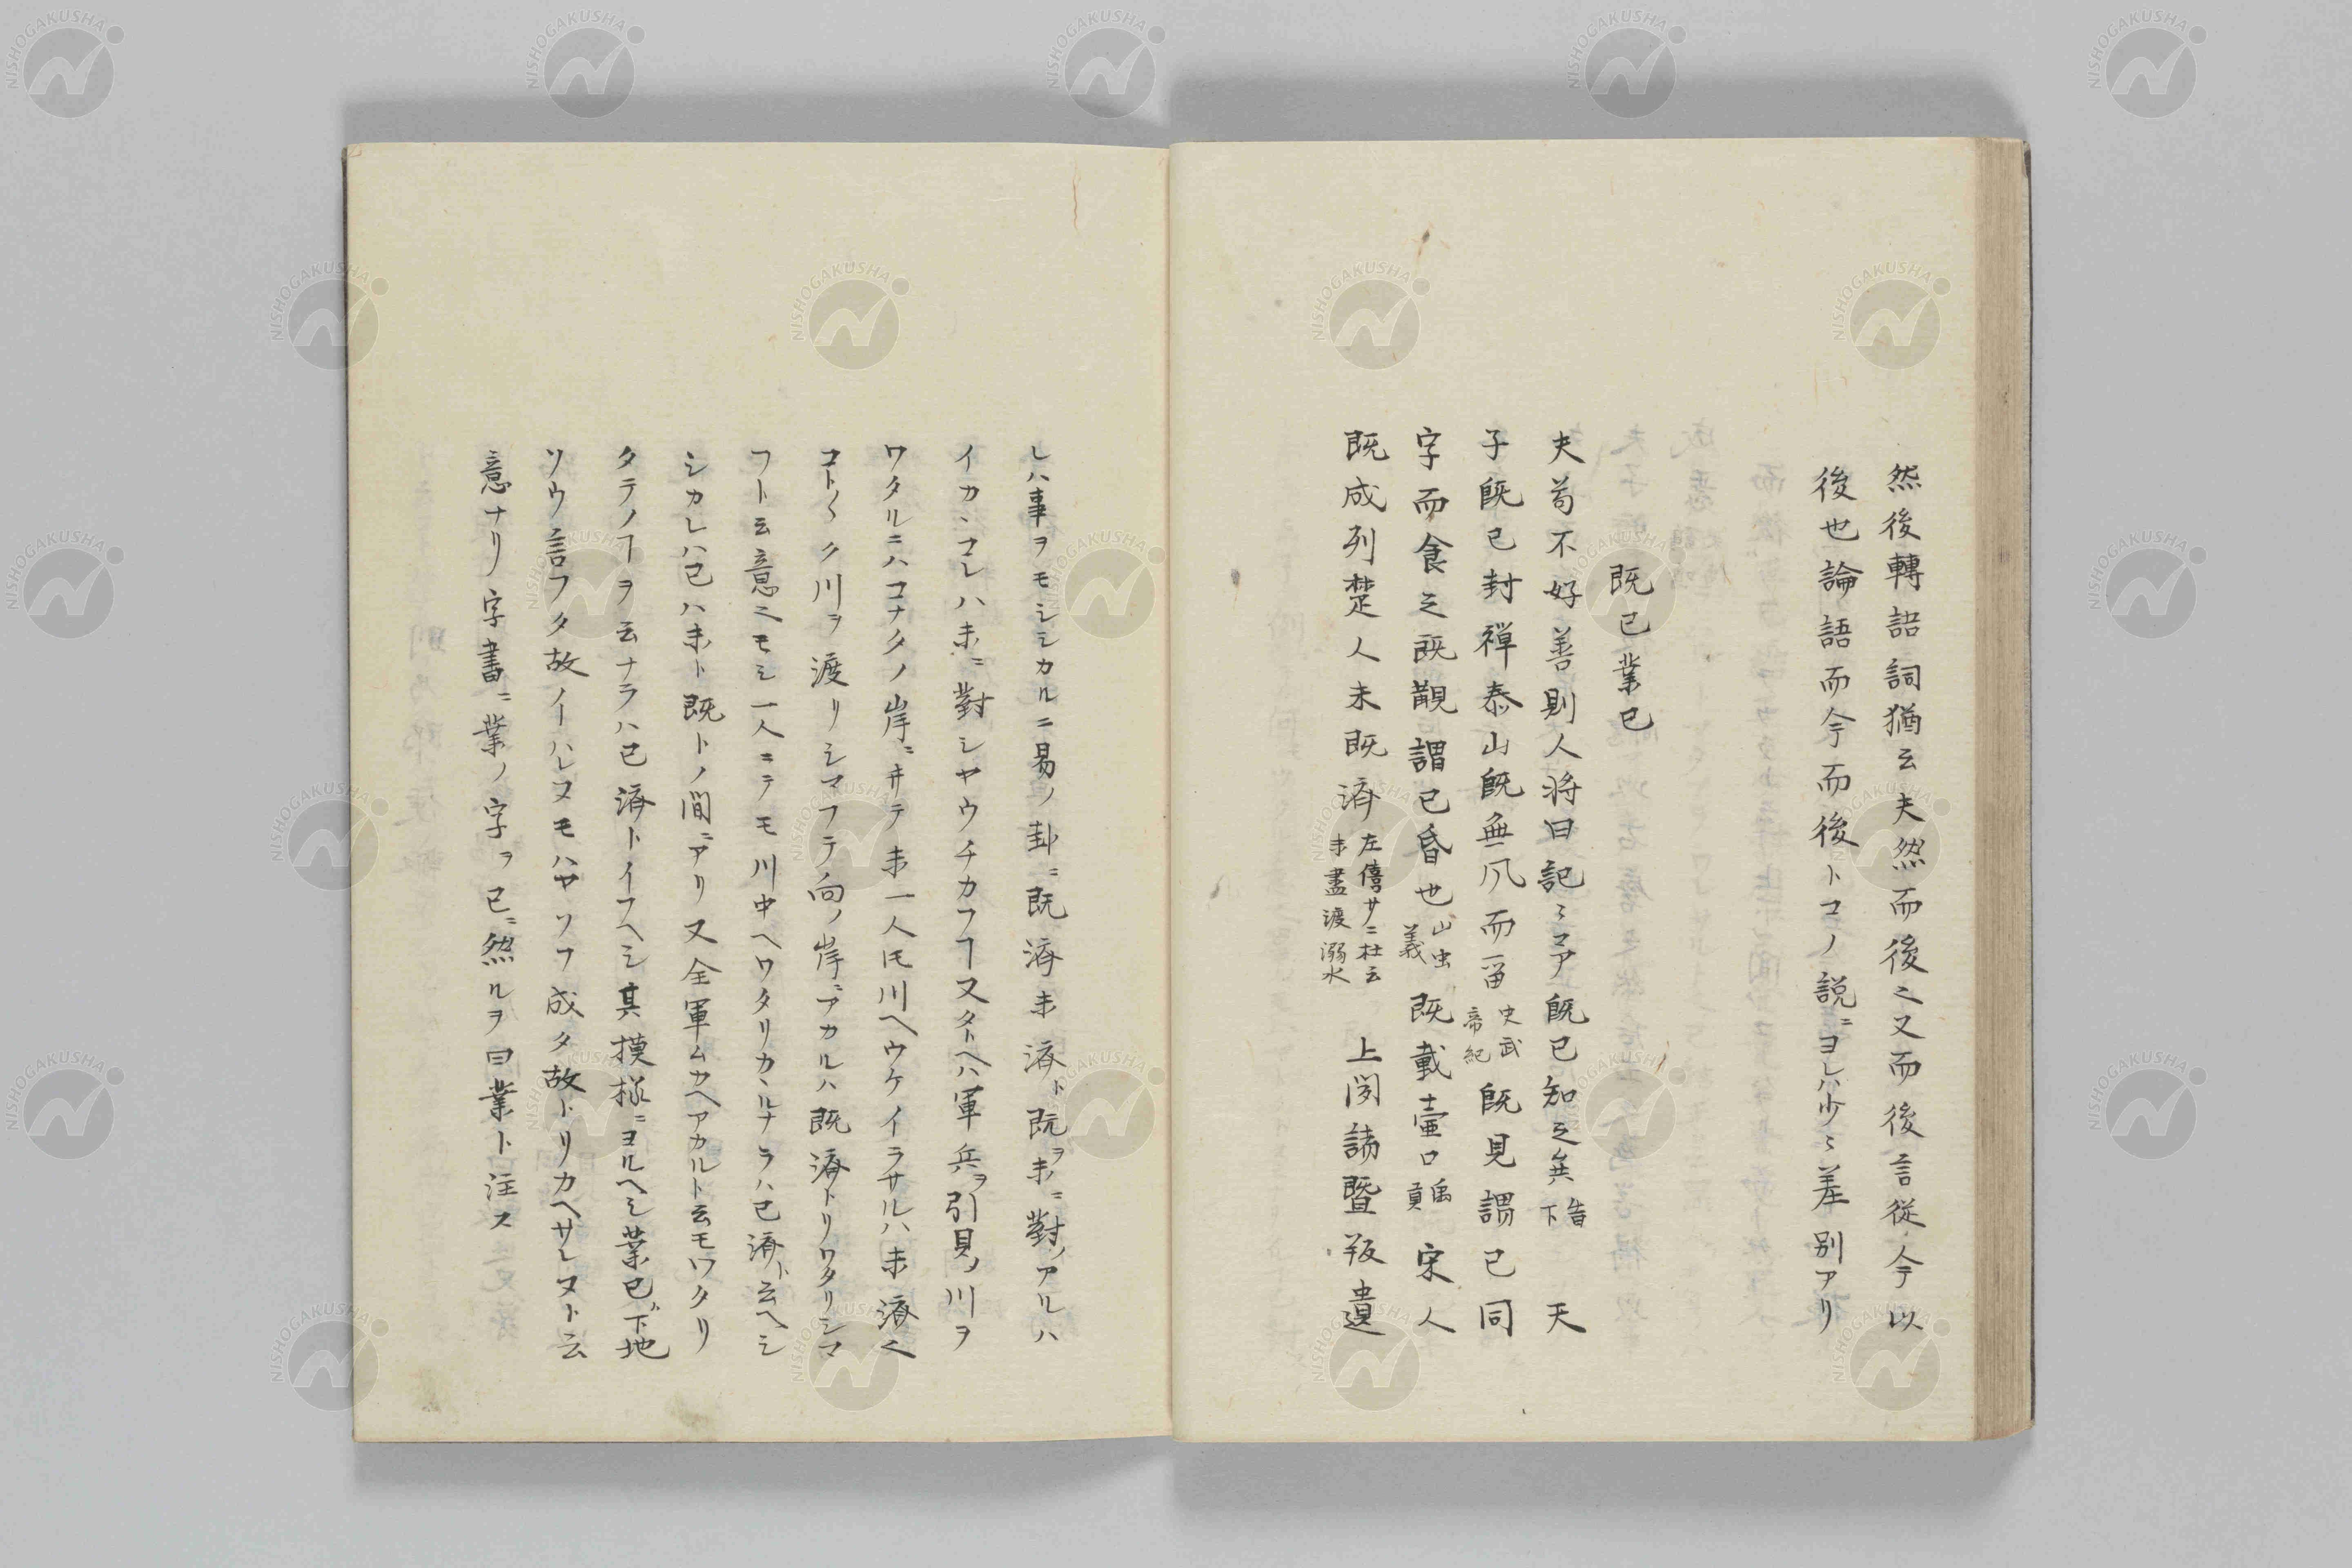 然後轉語詞猶云夫然而後之又而後言從今以
後也論語而今而後トコノ説ニヨレハ少ミ差別アリ
既已業已
夫苟不好善則人将曰記ミコア既已知之矣告下 天
子既已封禅泰山既無风而畄史武帝紀既見謂已同
字而食之既覯謂已昏也山虫義既載壷口禹貢宋人
既成列楚人未既済左僖廿二杜云未盡渡溺水 上閔誘曁叛遺
レハ事ヲモシシカルニ易ノ卦ニ既済未済ト既ヲ未ニ對ノアルハ
イカヽコレハ未ニ對シヤウチカフヿ又タトヘハ軍兵ヲ引見ノ川ヲ
ワタルニハコナタノ岸ニ井テ未一人モ川ヘウケイラサルハ未済之
コトノヽク川ヲ渡リシマフテ向ノ岸ニアカルハ既済トリワタリシマ
フト云意之モシ一人ニテモ川中ヘワタリカヽルナラハ已済ト云ヘシ
シカレハ已ハ未ト既トノ間ニアリ又全軍ムカヘアカルト云モワタリ
タテノヿヲ云ナラハ已済トイフヘシ其摸様ニヨルヘシ業已ガ下地
ソウ言フタ故イーハレヌモハヤソフ成タ故トリカヘサレヌト云
意ナリ字書ニ業ノ字ヲ已ニ然ルヲ曰業ト注ス
NISHOGAKUSHA